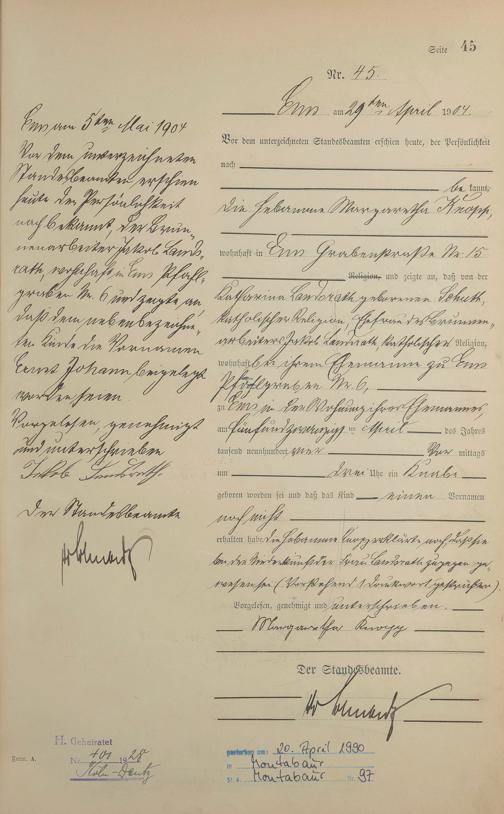 Seite 45
Nr. 45.
Ems am 29ten April 1904.
Vor dem unterzeichneten Standesbeamten erschien heute, der Persönlichkeit
nach
be kannt,
die Hebamme Margaretha Knopp,
wohnhaft in Ems Grabenstraße Nr. 15
Religion, und zeigte an, daß von der
Katharina Landsrath geborenen Schuth,
katholischer Religion, Ehefrau des Brunnen-
arbeiters Jakob Landsrath, katholischer Religion,
wohnhaft bei ihrem Ehemanne zu Ems
Pfahlgraben Nr. 6,
zu Ems in der Wohnung ihres Ehemannes,
am fünfundzwanzigsten April des Jahres
tausend neunhundert vier Vor mittags
um drei Uhr ein Knabe
geboren worden sei und daß das Kind einen Vornamen
noch nicht
erhalten habe. Die Hebamme Knopp erklärte noch, daß sie
bei der Niederkunft der Frau Landsrath zugegen ge-
wesen sei (Vorstehend 1 Druckwort gestrichen).
Vorgelesen, genehmigt und unterschrieben.
Margaretha Knopp
Der Standesbeamte.
Ems am 5ten Mai 1904
Vor dem unterzeichneten
Standesbeamten erschien
heute der Persönlichkeit
nach bekannt, der Brun-
nenarbeiter Jakob Lands-
rath, wohnhaft in Ems Pfahl-
graben Nr. 6 und zeigte an
daß dem nebenbezeichne-
ten Kinde die Vornamen
Ernst Johann beigelegt
worden seien.
Vorgelesen, genehmigt
und unterschrieben
Jakob Landsrath
Der Standesbeamte
H. Geheiratet
Nr. 401 1928
Köln-Deutz
Form. A.
gestorben am: 20. April 1990
in Montabaur
St.A. Montabaur Nr. 97